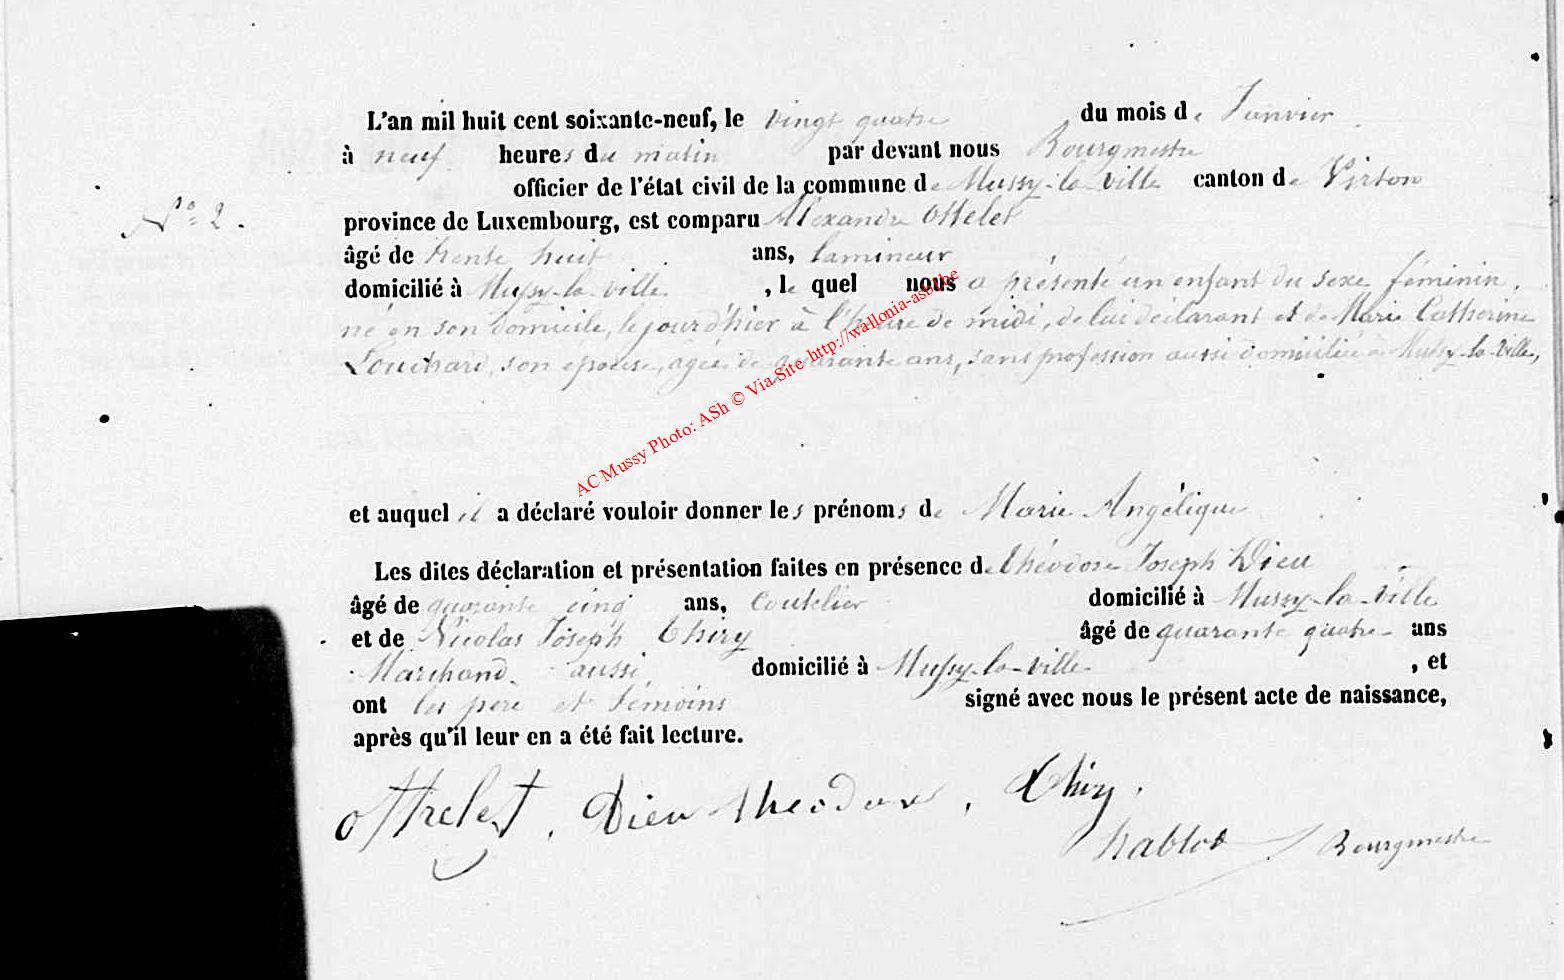 L'an mil huit cent soixante-neuf, le vingt quatre du mois de Janvier
à neuf heures du matin par devant nous Bourgmestre
officier de l'état civil de la commune de Mussy-la-ville canton de Virton
N° 2.
province de Luxembourg, est comparu Alexandre Ottelet
âgé de trente huit ans, lamineur
domicilié à Mussy-la-ville, le quel nous a présenté un enfant du sexe féminin,
né en son domicile, le jour d'hier à l'heure de midi, de lui déclarant et de Marie Catherine
Louchard, son épouse, agée de quarante ans, sans profession aussi domiciliée à Mussy-la-Ville,
AC Mussy Photo: ASh © Via Site http://wallonia-asbl.be
et auquel il a déclaré vouloir donner les prénoms de Marie Angélique
Les dites déclaration et présentation faites en présence de Théodore Joseph Dieu
âgé de quarante cinq ans, Coutelier domicilié à Mussy-la-ville
et de Nicolas Joseph Thiry âgé de quarante quatre ans
Marchand aussi, domicilié à Mussy-la-ville, et
ont les pere et témoins signé avec nous le présent acte de naissance,
après qu'il leur en a été fait lecture.
Dieu theodore, Thiry.
Bourgmestre